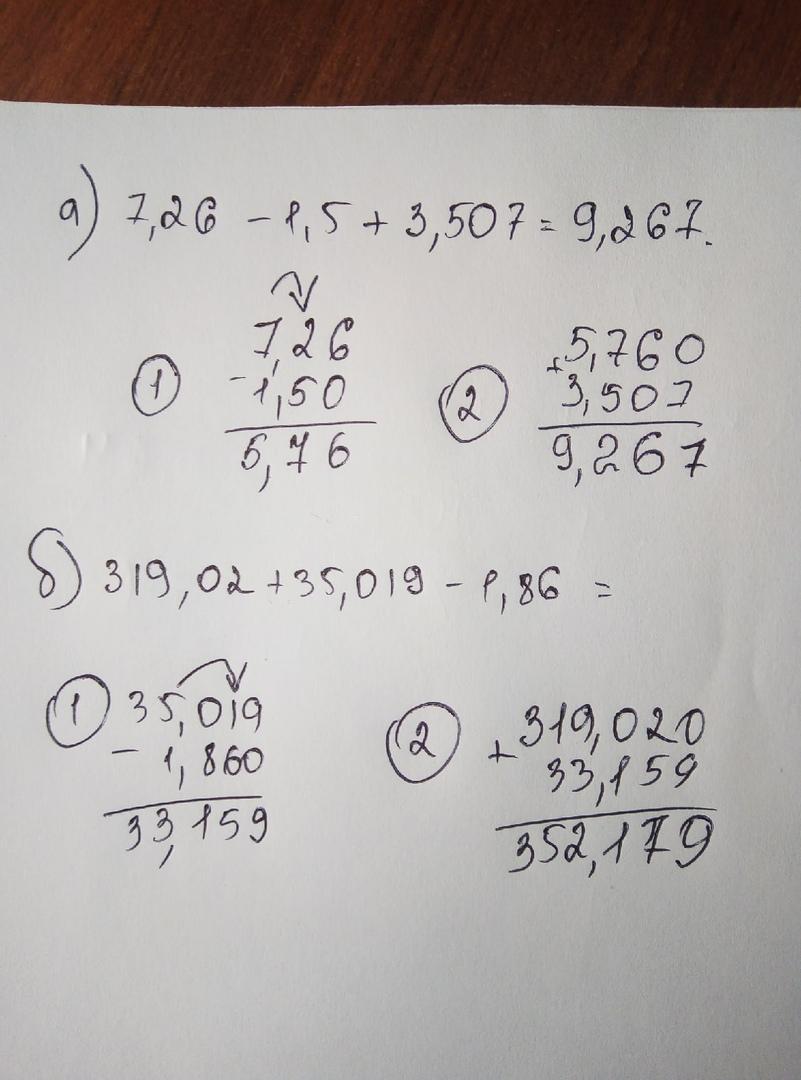 а) 7,26 - 1,5 + 3,507 = 9,267.
① 7,26
- 1,50
5,76
② 5,760
+ 3,507
9,267
б) 319,02 + 35,019 - 1,86 =
① 35,019
- 1,860
33,159
② 319,020
+ 33,159
352,179